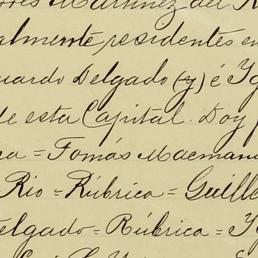 Martinez del
almente residentes en
uardo Delgado (y) é Ig
de esta Capital. Doy
ca = Tomás Macmanu
Rio = Rúbrica = Guille
elgado = Rúbrica = Ig